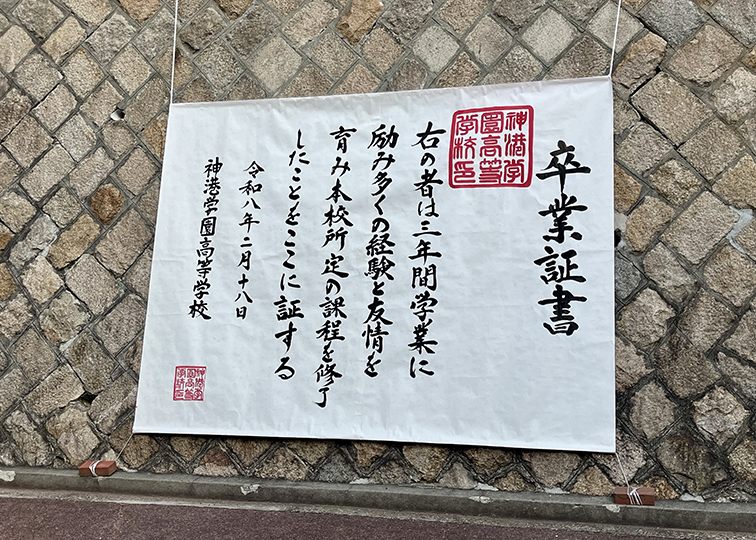 卒業証書
神港学
園高等
学校印
右の者は三年間学業に
励み多くの経験と友情を
育み本校所定の課程を修了
したことをここに証する
令和八年二月十八日
神港学園高等学校
神港学
園高等
学校印